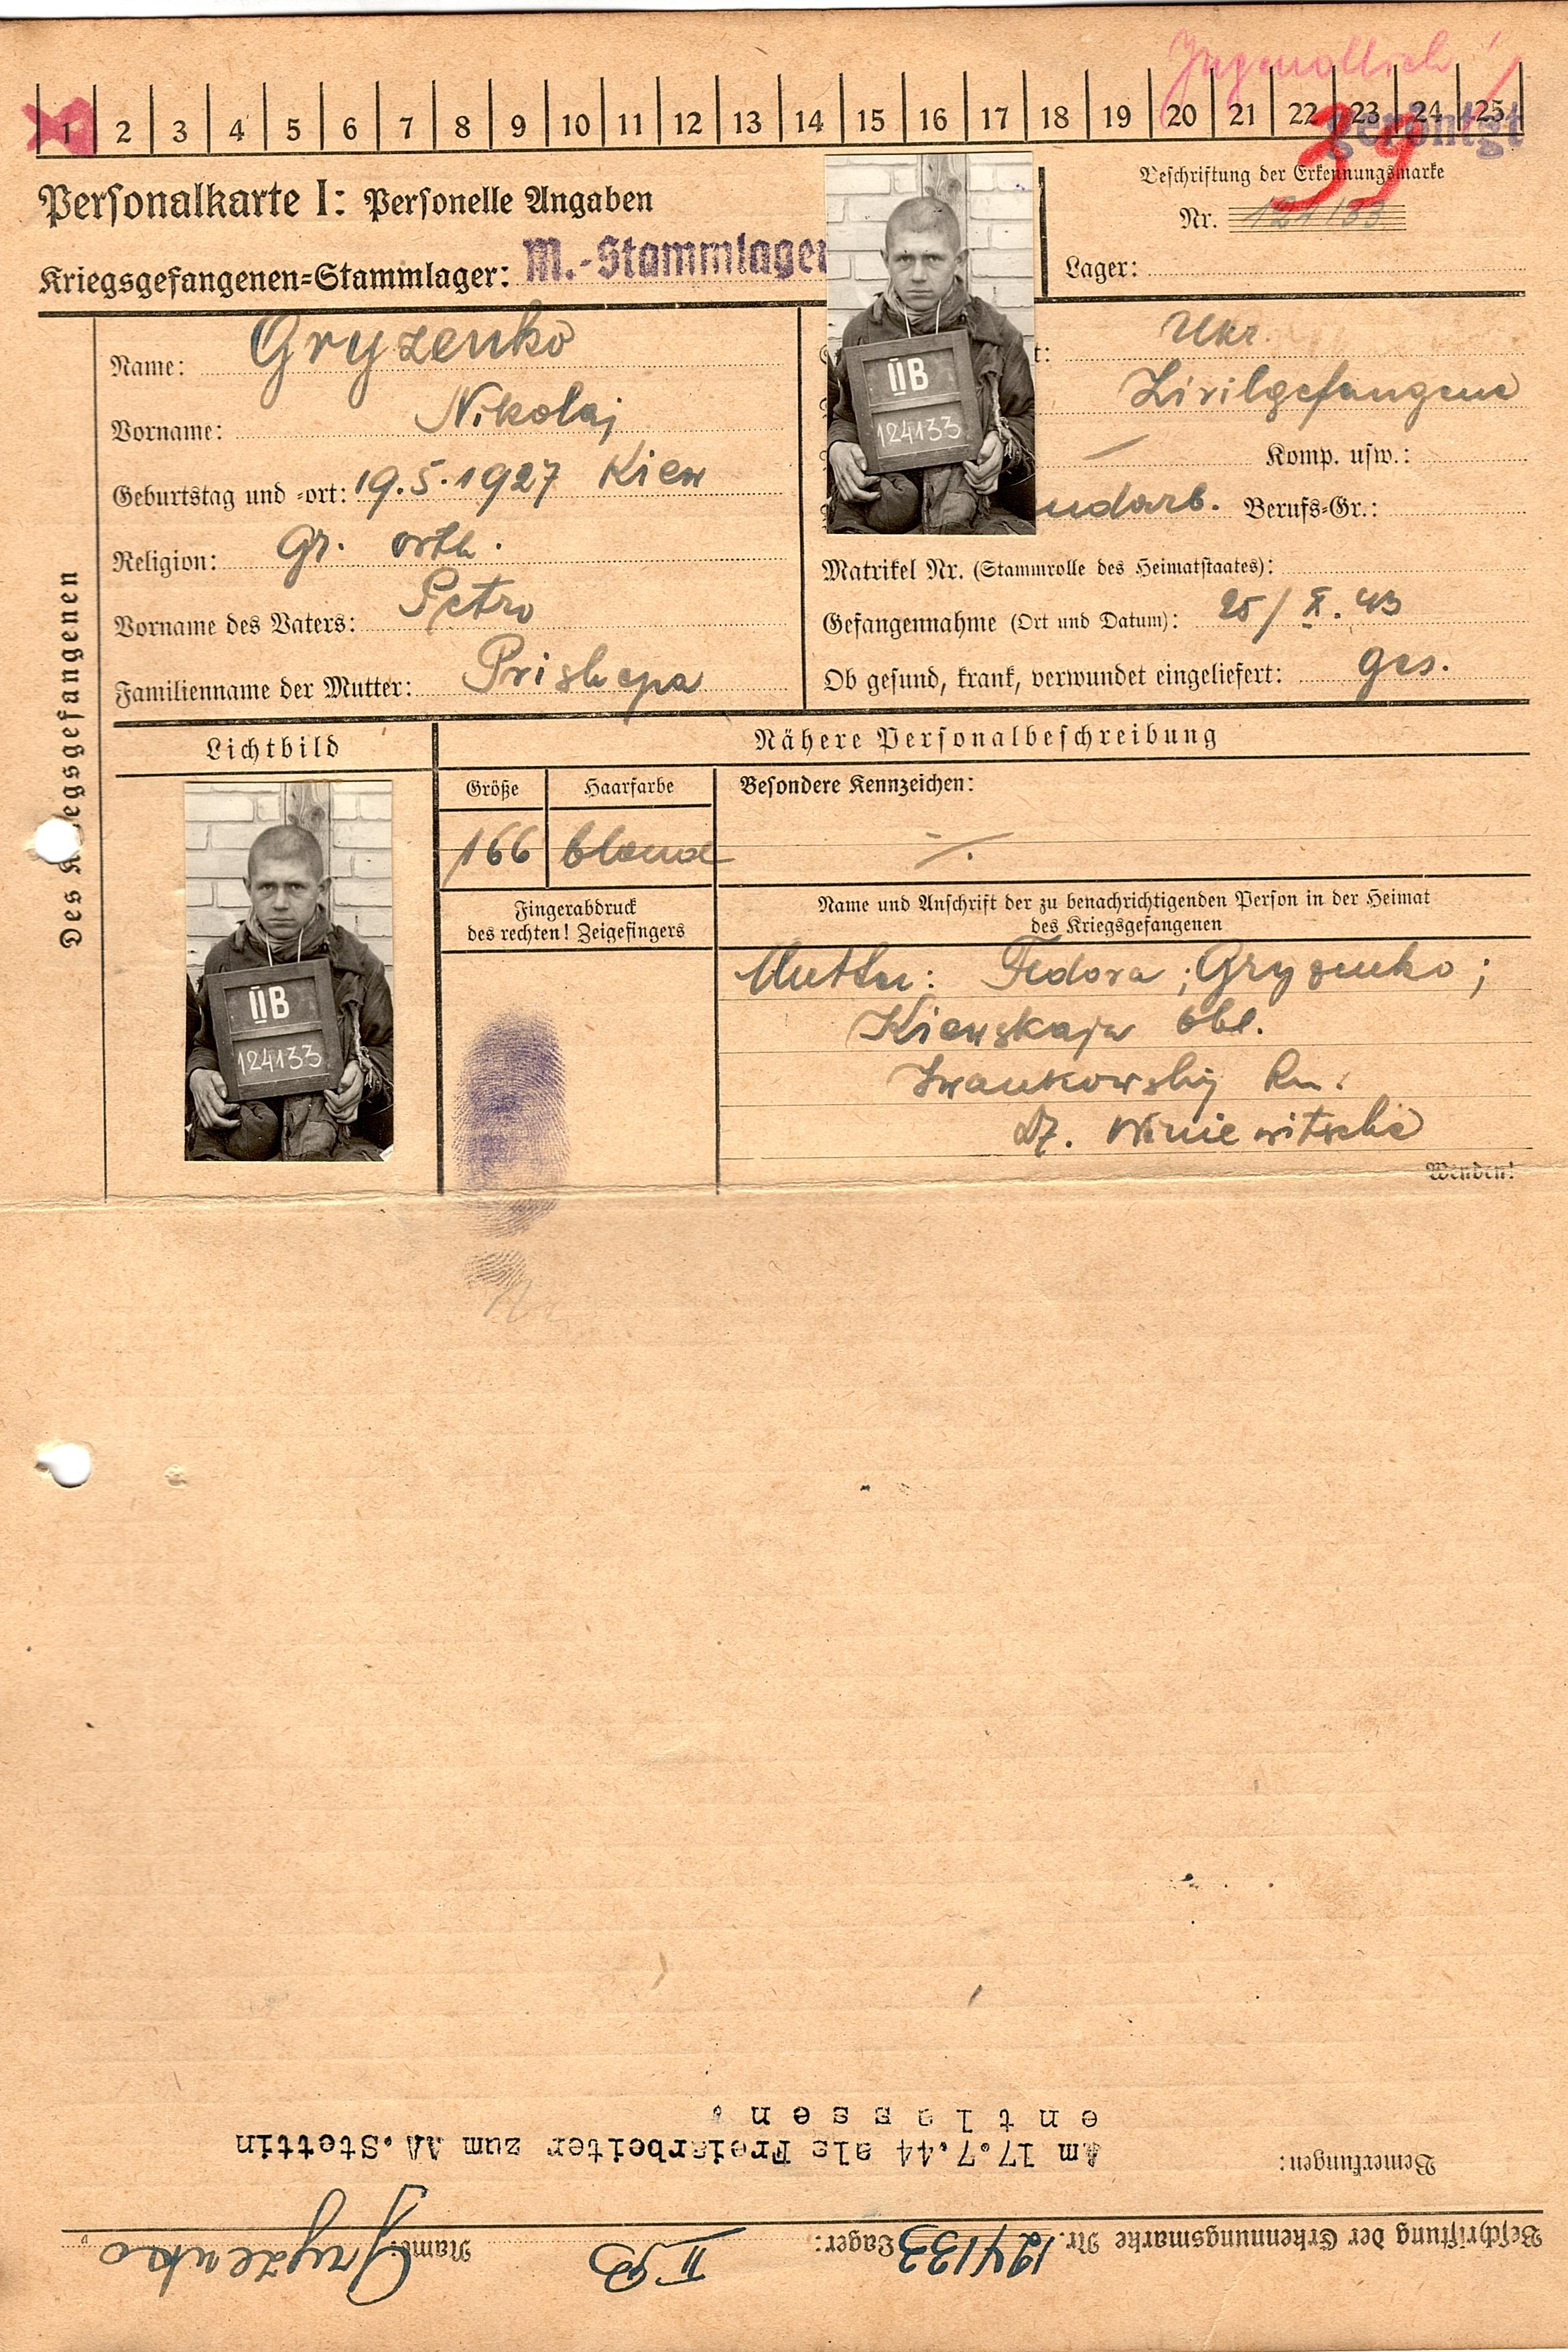 Jugendlich!
1 2 3 4 5 6 7 8 9 10 11 12 13 14 15 16 17 18 19 20 21 22 23 24 25
geröntgt
39
Personalkarte I: Personelle Angaben
Kriegsgefangenen-Stammlager: M.-Stammlager
Beschriftung der Erkennungsmarke
Nr. 124133
Lager:
Des Kriegsgefangenen
Name: Gryzenko
Vorname: Nikolaj
Geburtstag und -ort: 19.5.1927 Kiew
Religion: Gr. orth.
Vorname des Vaters: Petro
Familienname der Mutter: Prishepa
IIB
124133
t: Ukr.
Zivilgefangene
Komp. usw.:
ndarb. Berufs-Gr.:
Matrikel Nr. (Stammrolle des Heimatstaates):
Gefangennahme (Ort und Datum): 25/X.43
Ob gesund, krank, verwundet eingeliefert: ges.
Lichtbild
IIB
124133
Nähere Personalbeschreibung
Größe Haarfarbe Besondere Kennzeichen:
166 blond
Fingerabdruck
des rechten! Zeigefingers
Name und Anschrift der zu benachrichtigenden Person in der Heimat
des Kriegsgefangenen
Mutter: Fedora; Gryzenko;
Kiewskaja Obl.
Iwankowskij Rn.
Winiewitsche
Wenden!
Beschriftung der Erkennungsmarke Nr. 124133 Lager: II B Name: Gryzenko
Bemerkungen:
Am 17.7.44 als Freiarbeiter zum AA. Stettin
entlassen.